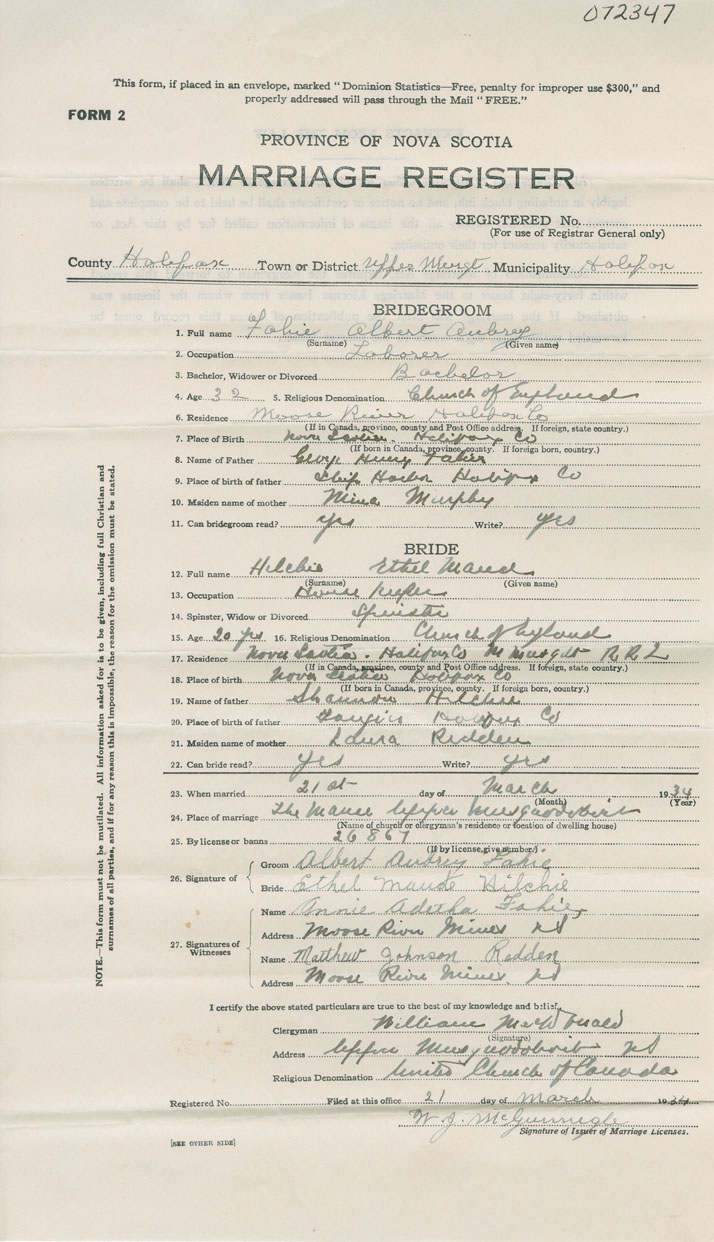 072347
This form, if placed in an envelope, marked "Dominion Statistics—Free, penalty for improper use $300," and
properly addressed will pass through the Mail "FREE."
FORM 2
PROVINCE OF NOVA SCOTIA
MARRIAGE REGISTER
REGISTERED No.
(For use of Registrar General only)
County Halifax Town or District Upper Musqt Municipality Halifax
BRIDEGROOM
1. Full name Fahie Albert Aubrey
(Surname) (Given name)
2. Occupation Laborer
3. Bachelor, Widower or Divorced Bachelor
4. Age 32 5. Religious Denomination Church of England
6. Residence Moose River Halifax Co
(If in Canada, province, county and Post Office address. If foreign, state country.)
7. Place of Birth Nova Scotia. Halifax Co
(If born in Canada, province, county. If foreign born, country.)
8. Name of Father George Henry Fahie
9. Place of birth of father Ship Harbor Halifax Co
10. Maiden name of mother Mina Murphy
11. Can bridegroom read? yes Write? yes
BRIDE
12. Full name Hilchie Ethel Maud
(Surname) (Given name)
13. Occupation House Keeper
14. Spinster, Widow or Divorced Spinster
15. Age 20 yrs 16. Religious Denomination Church of England
17. Residence Nova Scotia. Halifax Co M Musqdt R.R.2
(If in Canada, province, county and Post Office address. If foreign, state country.)
18. Place of birth Nova Scotia Halifax Co
(If born in Canada, province, county. If foreign born, country.)
19. Name of father Shannon Hilchie
20. Place of birth of father Halifax Co
21. Maiden name of mother Laura Redden
22. Can bride read? Yes Write? yes
23. When married 21st day of March 1934
(Month) (Year)
24. Place of marriage The Manse Upper Musquodoboit
(Name of church or clergyman's residence or location of dwelling house)
25. By license or banns 26867
(If by license, give number)
26. Signature of Groom Albert Aubrey Fahie
Bride Ethel Maude Hilchie
27. Signatures of Witnesses
Name Annie Adetha Fahie
Address Moose River Mines NS
Name Matthew Johnson Redden
Address Moose River Mines NS
I certify the above stated particulars are true to the best of my knowledge and belief.
Clergyman William MacDonald
(Signature)
Address Upper Musquodoboit NS
Religious Denomination United Church of Canada
Registered No. Filed at this office 21 day of March 1934
W. J. McGunnigle
Signature of Issuer of Marriage Licenses.
[SEE OTHER SIDE]
NOTE.—This form must not be mutilated. All information asked for is to be given, including full Christian and
surnames of all parties, and if for any reason this is impossible, the reason for the omission must be stated.